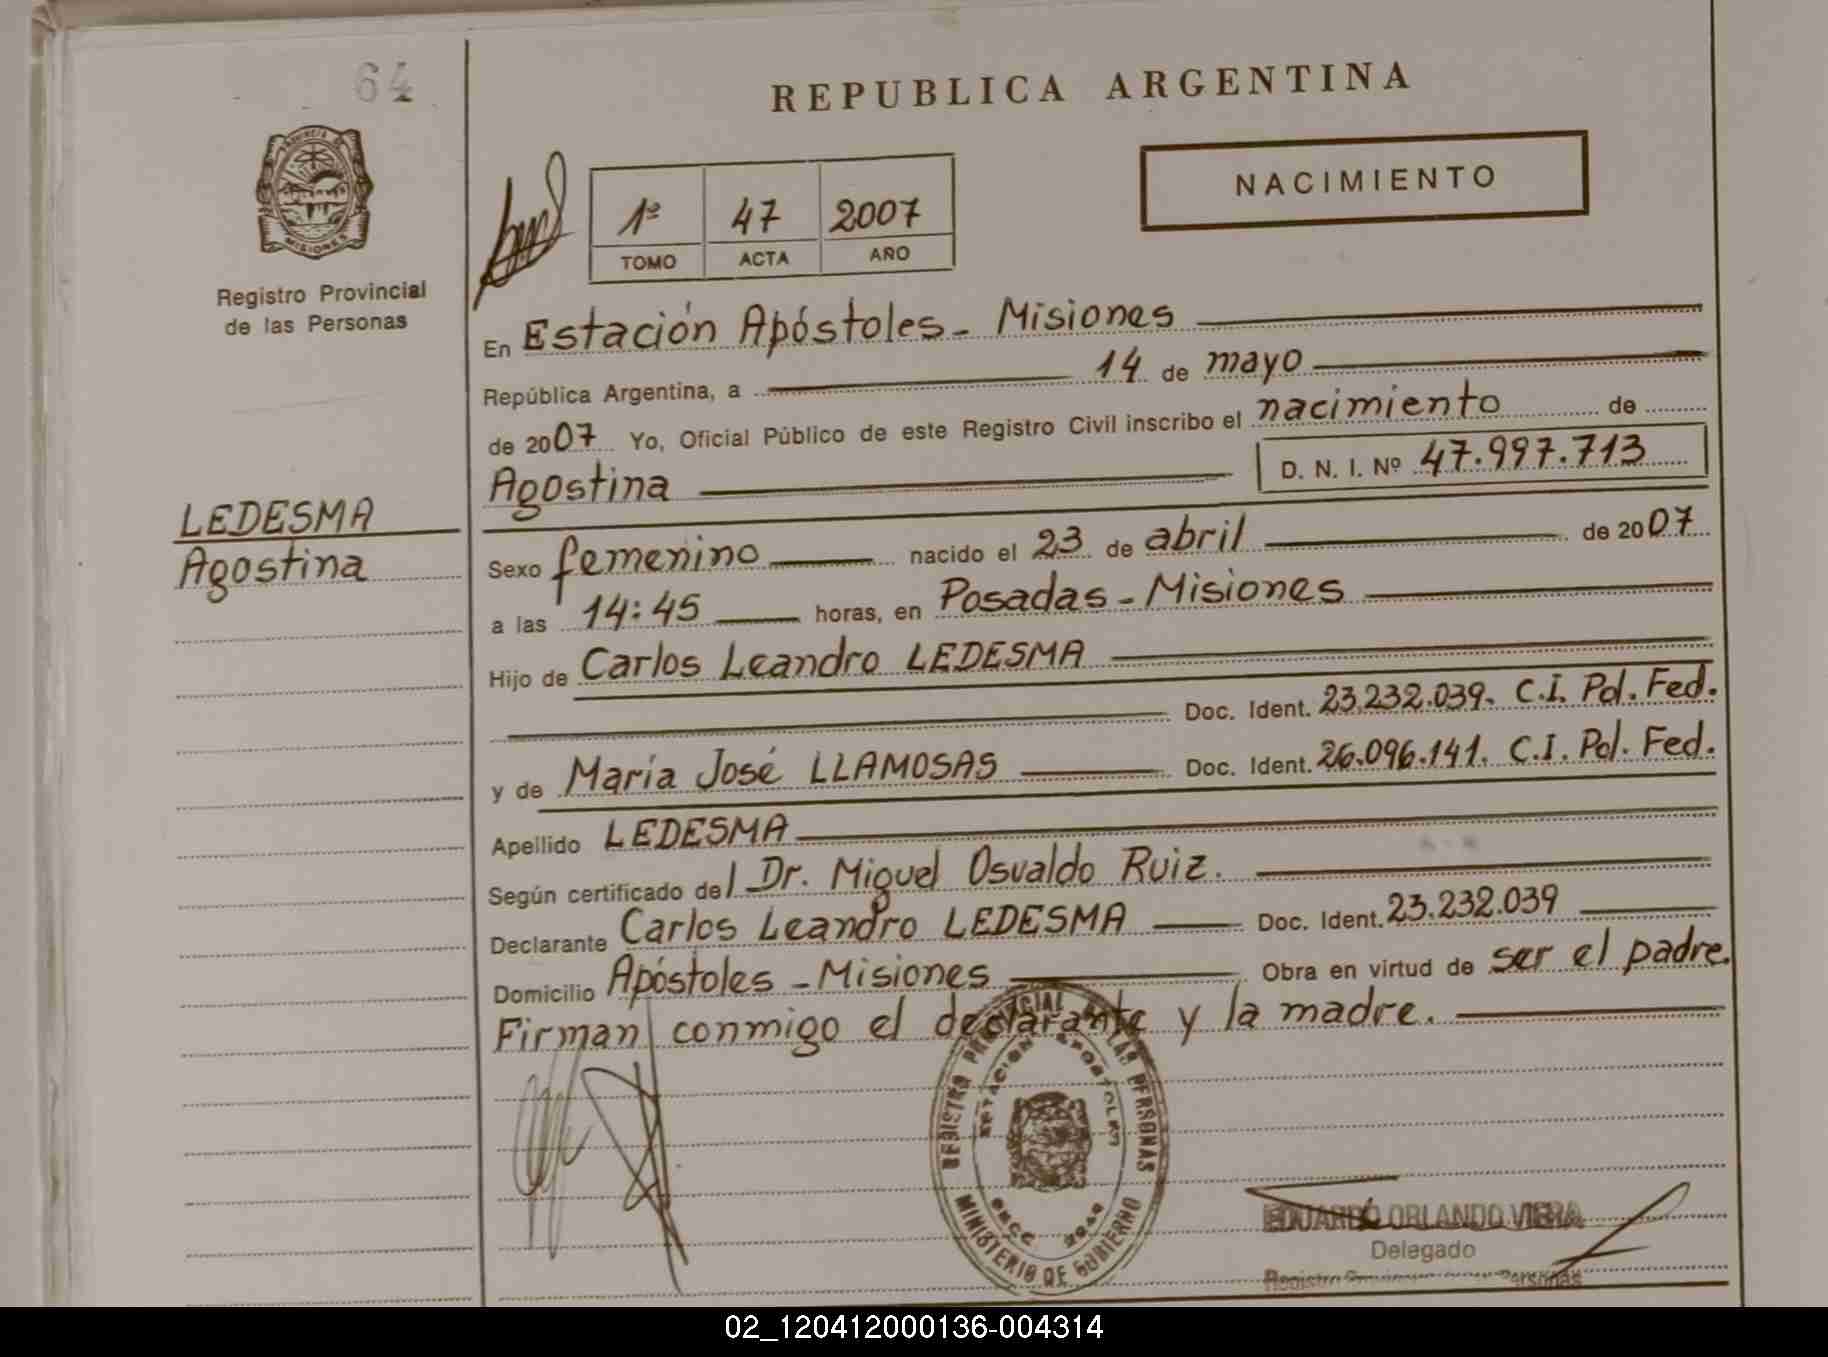 64
REPUBLICA ARGENTINA
PROVINCIA DE
MISIONES
Registro Provincial
de las Personas
1º 47 2007
TOMO ACTA AÑO
NACIMIENTO
En Estación Apóstoles - Misiones
República Argentina, a 14 de mayo
de 2007 Yo, Oficial Público de este Registro Civil inscribo el nacimiento de
Agostina D. N. I. Nº 47.997.713
LEDESMA
Agostina
Sexo femenino nacido el 23 de abril de 2007
a las 14:45 horas, en Posadas - Misiones
Hijo de Carlos Leandro LEDESMA
Doc. Ident. 23.232.039. C.I. Pol. Fed.
y de María José LLAMOSAS Doc. Ident. 26.096.141. C.I. Pol. Fed.
Apellido LEDESMA
Según certificado del Dr. Miguel Osvaldo Ruiz.
Declarante Carlos Leandro LEDESMA Doc. Ident. 23.232.039
Domicilio Apóstoles - Misiones Obra en virtud de ser el padre.
Firman conmigo el declarante y la madre.
REGISTRO PROVINCIAL DE LAS PERSONAS
ESTACION APOSTOLES
MINISTERIO DE GOBIERNO
EDUARDO ORLANDO VIERA
Delegado
Registro Personas
02_120412000136-004314